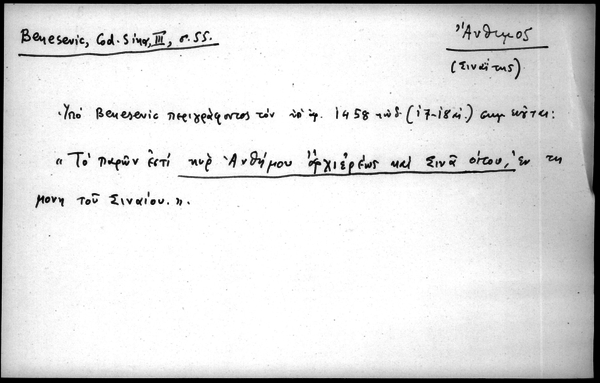 Benesevic, Cod. Sina, III, σ. 55.
Ἄνθιμος
(Σιναΐτης)
Ὑπὸ Benesevic περιγράφοντος τὸν ὑπ' ἀρ. 1458 κώδ. (17-18 αἰ.) σημειοῦται:
« Τὸ παρὸν ἐστί κὺρ Ἀνθήμου ἀρχιέρέως καὶ Σινᾶ ὄρου, ἐν τη
μονη τοῦ Σιναίου.».